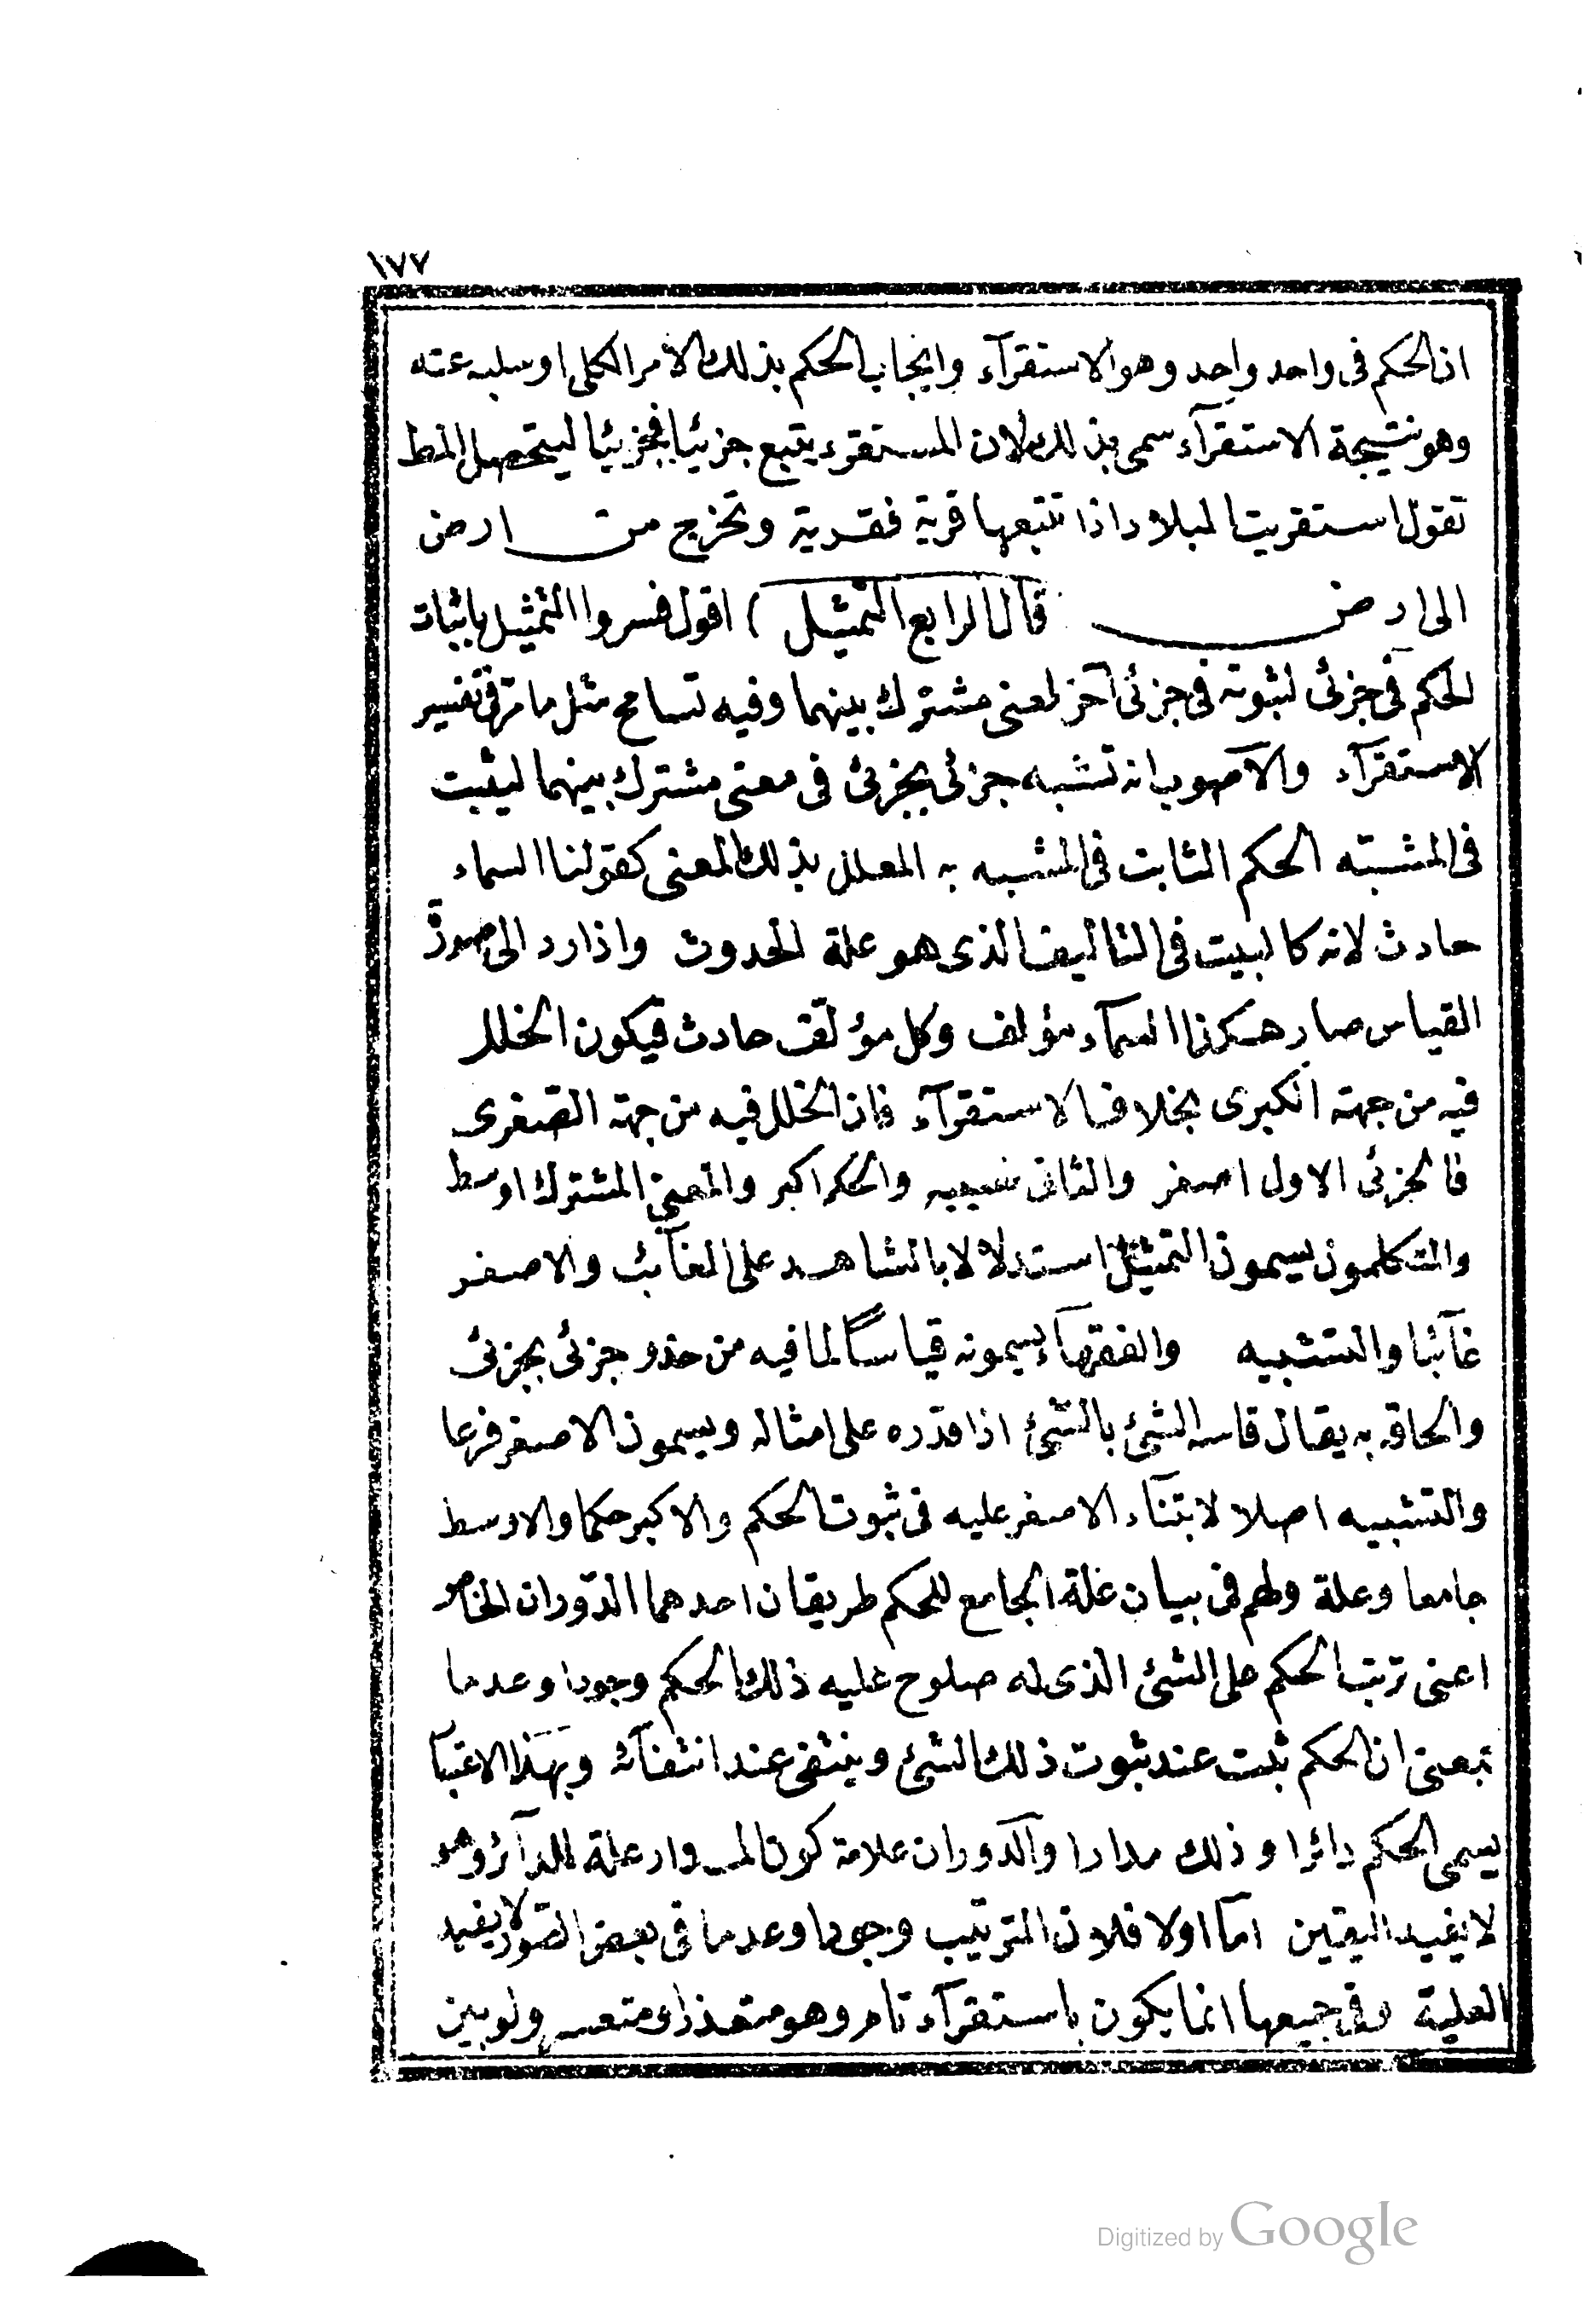 ١٧٧
ان الحكم فى واحد واحد وهو الاستقرآء وايجاب الحكم بذلك الامر الكلى او سلبه عنه
وهو نتيجة الاستقرآء سمى بذلك لان المستقرء يتبع جزئيا فجزئيا ليتحصل المط
تقول استقريت البلاد اذا تتبعها قرية فقرية وتخرج من ارض
الى ارض قال الرابع التمثيل ) اقول فسروا التمثيل باثبات
الحكم فى جزئى لثبوته فى جزئى آخر لمعنى مشترك بينهما وفيه تسامح مثل ما مر فى تفسير
الاستقرآء والاصوب انه تشبه جزئى بجزئى فى معنى مشترك بينهما ليثبت
فى المشبه الحكم الثابت فى المشبه به المعلل بذلك المعنى كقولنا السماء
حادث لانه كالبيت فى التاليف الذى هو علة الحدوث واذا رد الى صورة
القياس صار هكذا السمآء مؤلف وكل مؤلف حادث فيكون الخلل
فيه من جهته الكبرى بخلاف الاستقرآء فان الخلل فيه من جهة الصغرى
فالجزئى الاول اصغر والثانى شبيه والحكم اكبر والمعنى المشترك اوسط
والمتكلمون يسمون التمثيل استدلالا بالشاهد على الغآئب والاصغر
غآئبا والتشبيه والفقهآء يسمونه قياسا لما فيه من حذو جزئى بجزئى
والحاقه به يقال قاس الشئ بالشئ اذا قدره على امثاله ويسمون الاصغر فرعا
والتشبيه اصلا لابتنآء الاصغر عليه فى ثبوت الحكم والاكبر حكما والاوسط
جامعا وعلة ولهم فى بيان علة الجامع للحكم طريقان احدهما الدوران الخاص
اعنى ترتب الحكم على الشئ الذى له صلوح عليه ذلك الحكم وجودا وعدما
بمعنى ان الحكم ثبت عند ثبوت ذلك الشئ وينتفى عند انتفآئه وبهذا الاعتبا
يسمى الحكم دائرا وذلك مدارا والدوران علامة كون المدار علة للدآئر وهو
لا يفيد اليقين اما اولا فلان الترتيب وجودا وعدما فى بعض الصور لا يفيد
العلية وفى جميعها انما يكون باستقرآء تام وهو متعذر او متعسر ولو بين
Digitized by Google